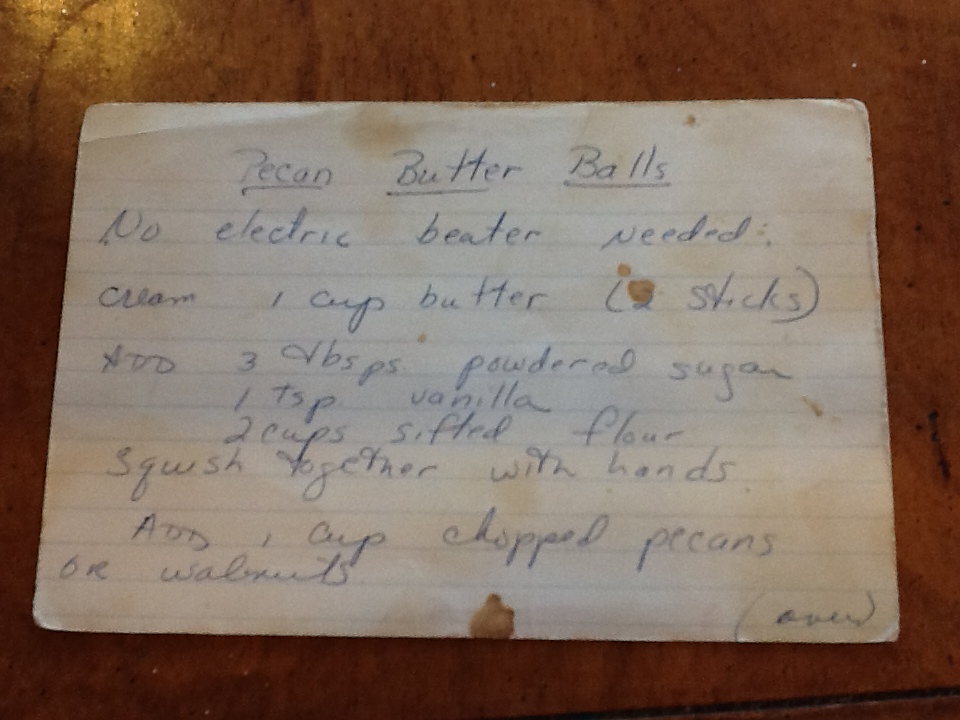 Pecan Butter Balls
No electric beater needed:
Cream 1 cup butter (2 sticks)
ADD 3 tbsps. powdered sugar
1 tsp. vanilla
2 cups sifted flour
Squish together with hands.
ADD 1 cup chopped pecans
or walnuts.
(over)